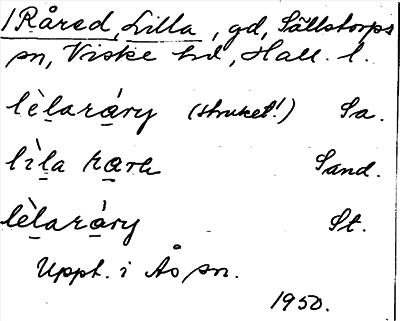 1 Råred, Lilla, gd, Sällstorps
sn, Viske hd, Hall. l.
lèlaráry (struket!) Sa.
lìla rara Sand.
lèlaráry St.
Uppt. i Ås sn.
1950.